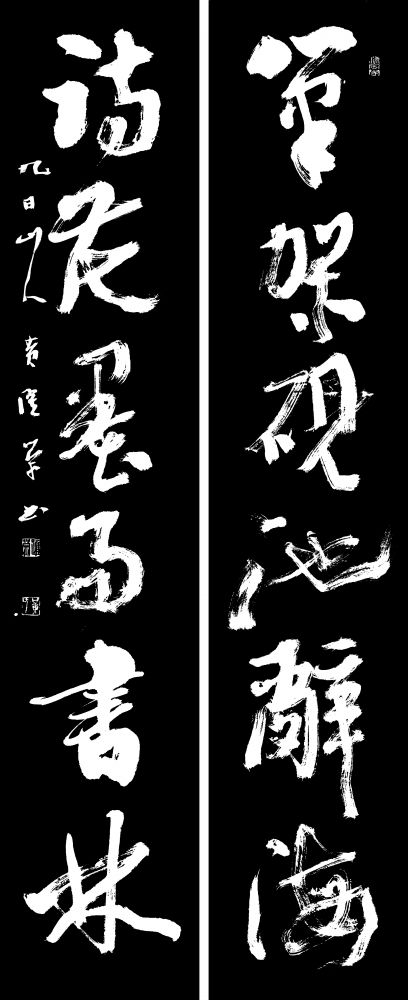 筆架硯池辭海
詩花墨雨書林
九日山人